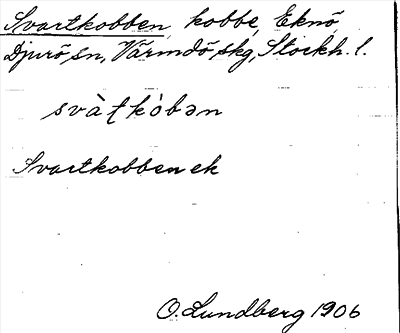 Svartkobben, kobbe, Eknö
Djurö sn, Värmdö skg, Stockh. l.
svàʈkòbən
Svartkobben ek
O. Lundberg 1906